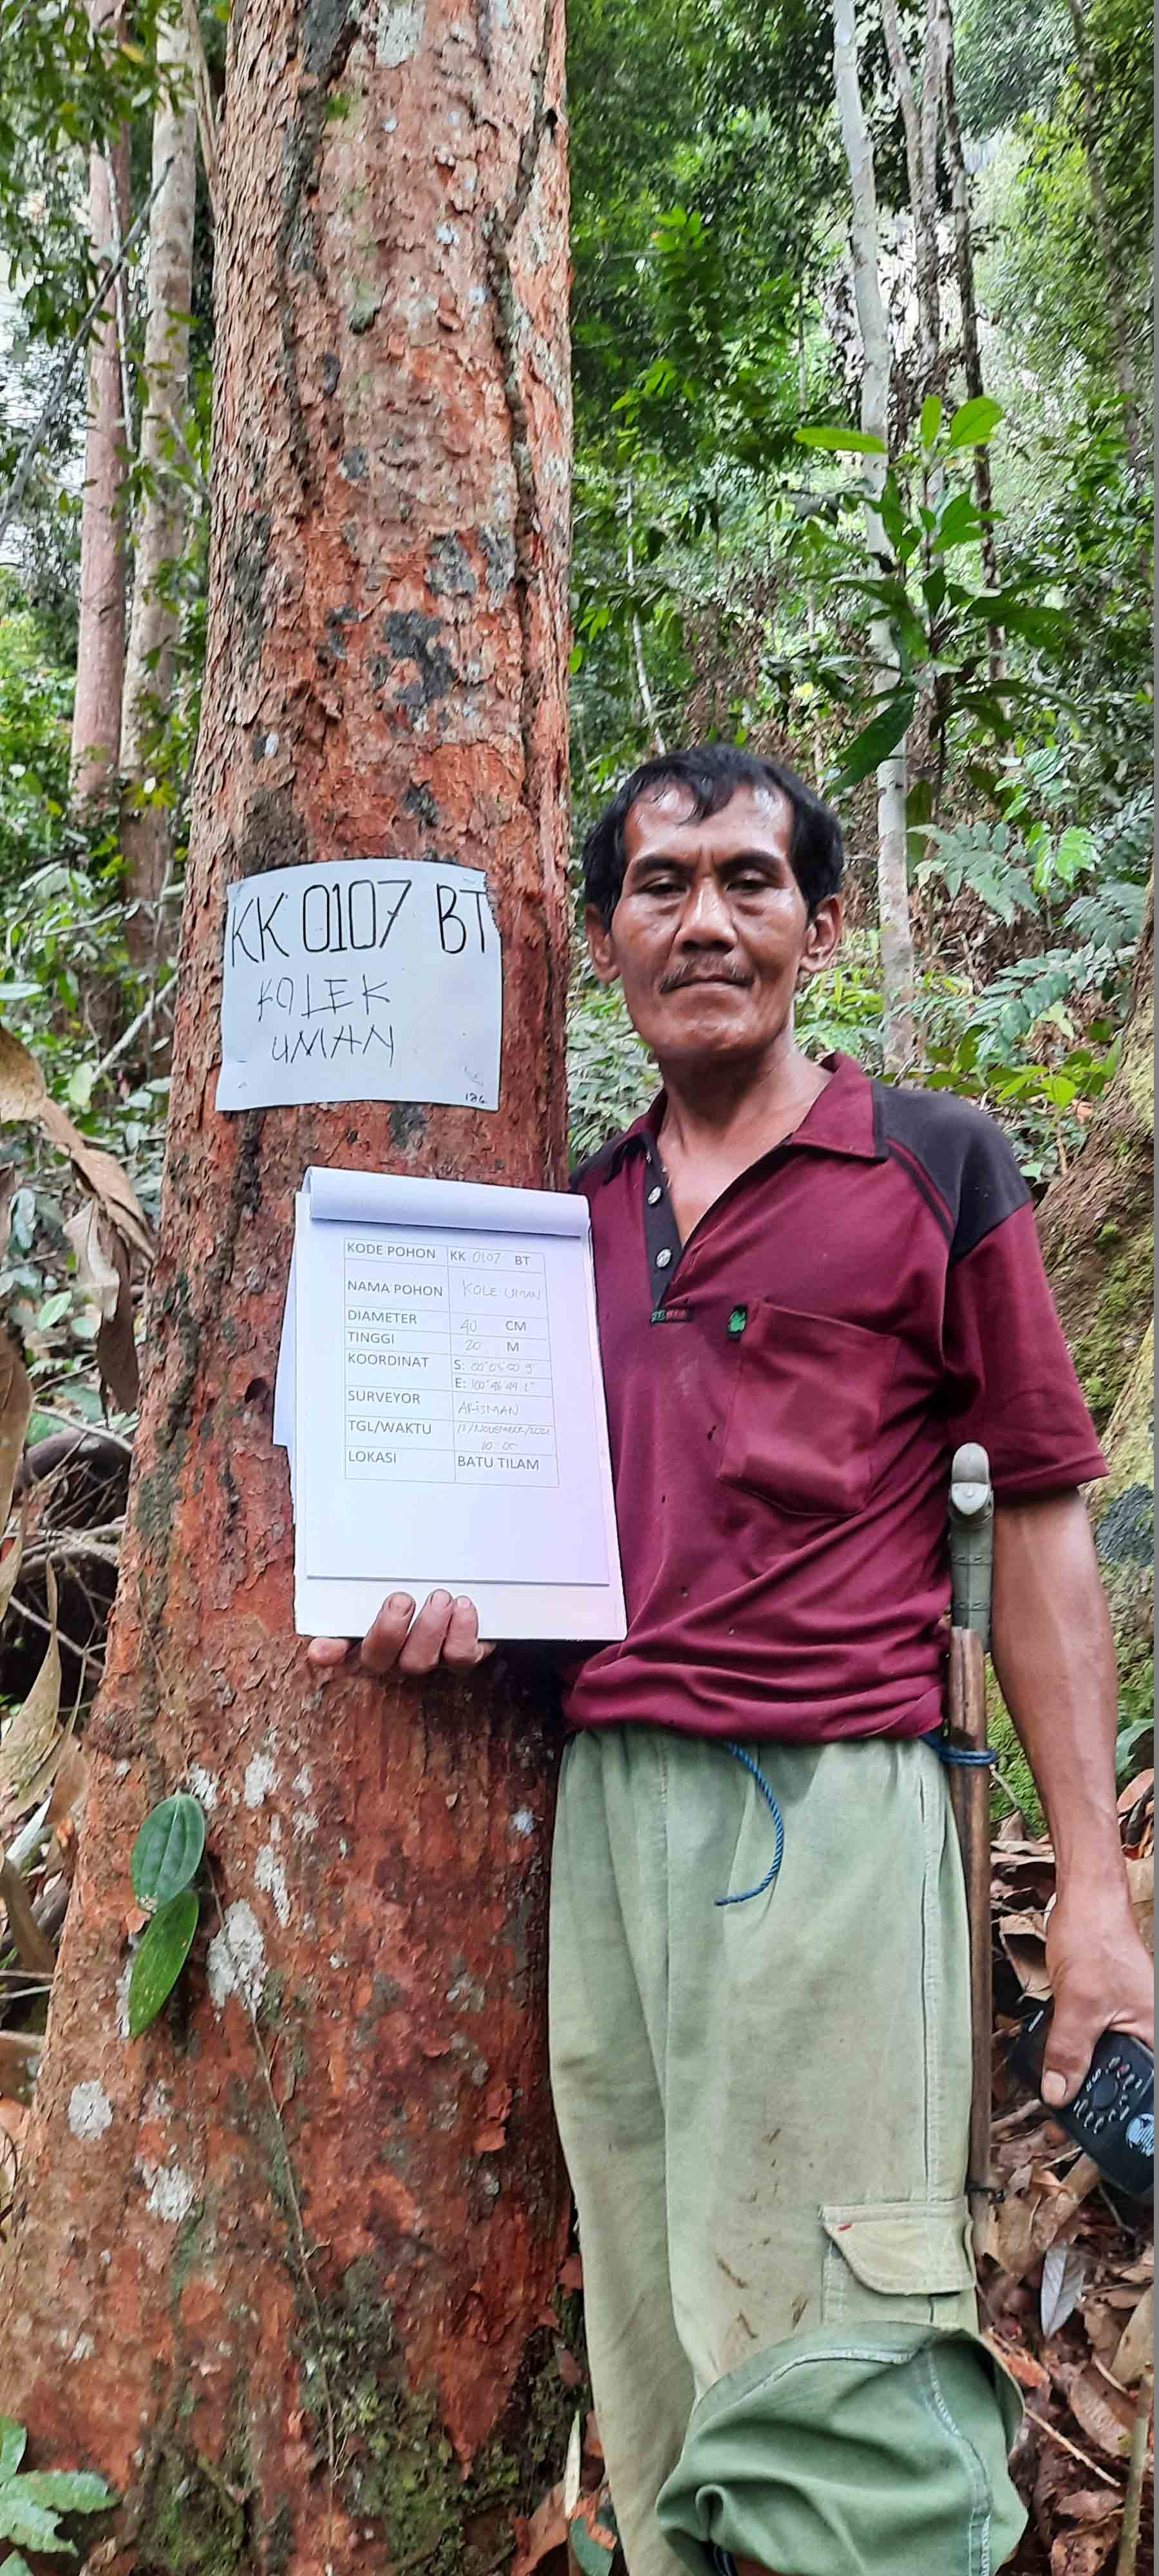 KK 0107 BT
KOLEK
UMAN
KODE POHON KK 0107 BT
NAMA POHON KOLE UMAN
DIAMETER 40 CM
TINGGI 20 M
KOORDINAT S:
E: 100°46'49.1"
SURVEYOR ARISMAN
TGL/WAKTU /NOVEMBER/2021
LOKASI BATU TILAM